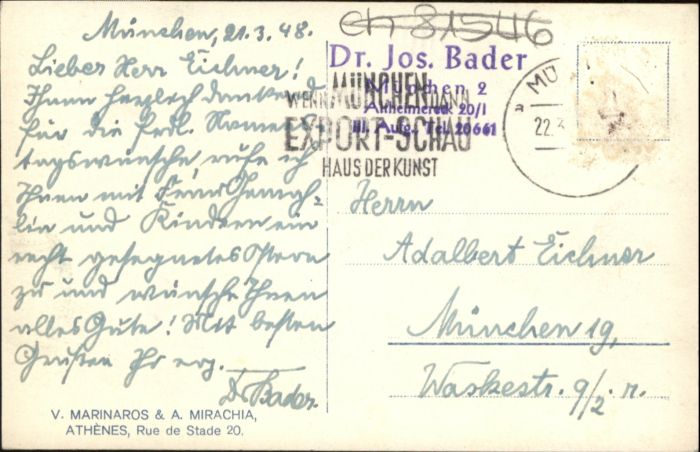 München, 21.3.48.
Lieber Herr Eichner!
Ihnen herzlich dankend
für die frdl. Namens-
tagswünsche, rufe ich
Ihnen mit Frau Gemah-
lin und Kindern ein
recht gesegnetes Ostern
zu und wünsche Ihnen
alles Gute! Mit besten
Grüßen Ihr erg.
Dr Bader.
V. MARINAROS & A. MIRACHIA,
ATHÈNES, Rue de Stade 20.
ch 81546
Dr. Jos. Bader
München 2
Altheimereck 20/I
III. Aufg. Tel. 20661
WENN MÜNCHEN DANN
EXPORT-SCHAU
HAUS DER KUNST
a MÜ
22.3
Herrn
Adalbert Eichner
München 19,
9/2. r.